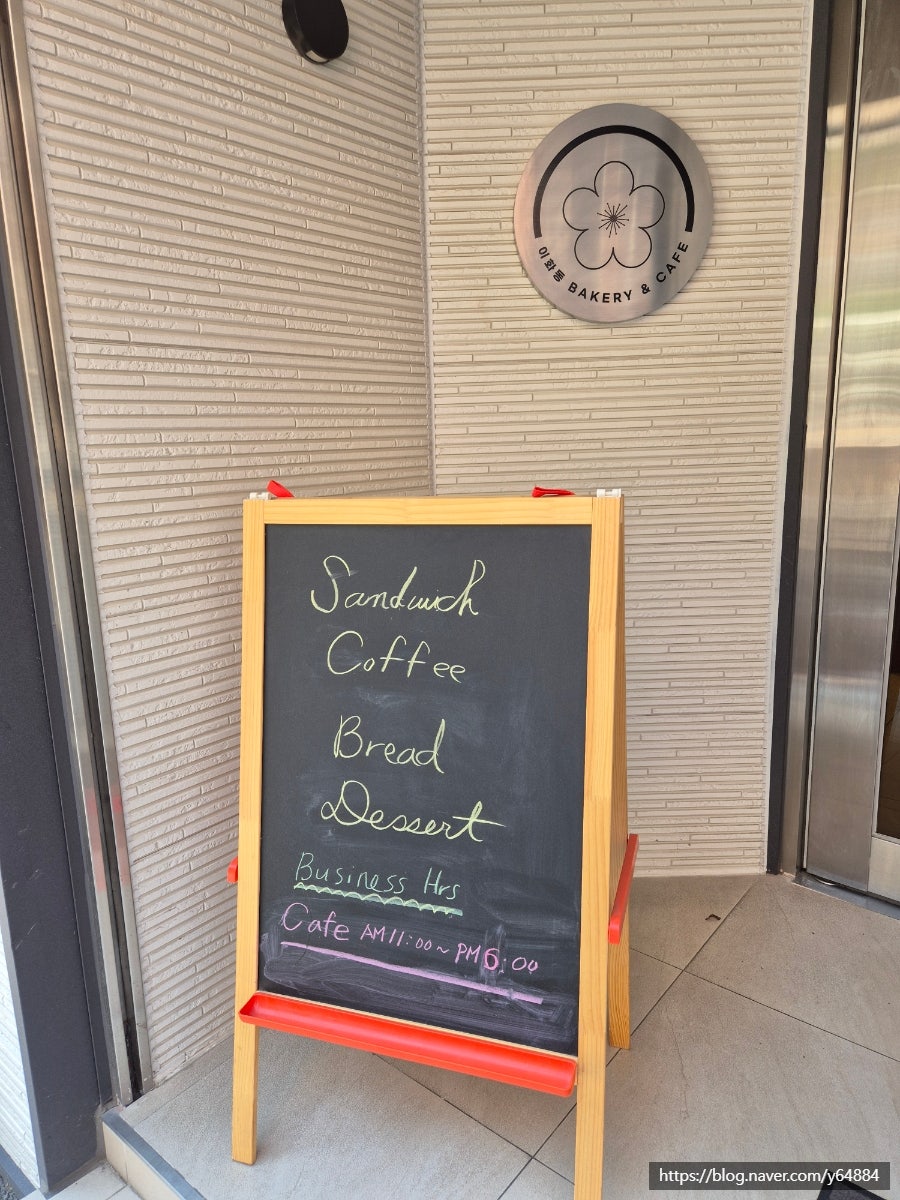 이화동 BAKERY & CAFE
Sandwich
Coffee
Bread
Dessert
Business Hrs
Cafe AM11:00~PM6:00
https://blog.naver.com/y64884